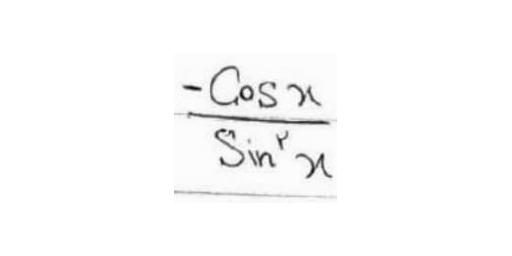 -Cos x
Sin² x